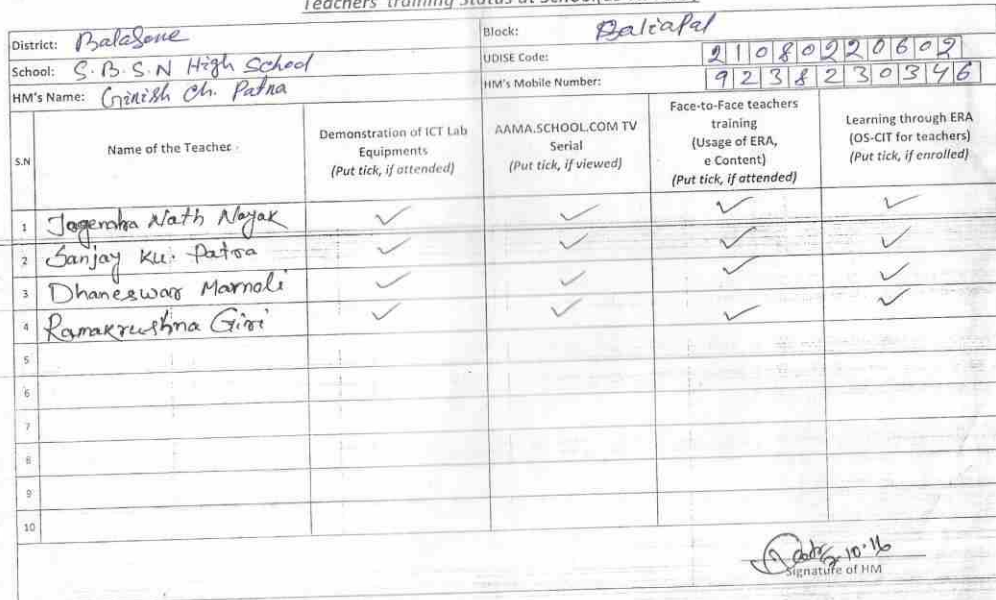 Teachers' training Status at School
District: Balasore
Block: Baliapal
School: S.B.S.N High School
UDISE Code: 21080220602
HM's Name: Girish Ch. Patra
HM's Mobile Number: 9238230346
S.N
Name of the Teacher
Demonstration of ICT Lab
Equipments
(Put tick, if attended)
AAMA.SCHOOL.COM TV
Serial
(Put tick, if viewed)
Face-to-Face teachers
training
(Usage of ERA,
e Content)
(Put tick, if attended)
Learning through ERA
(OS-CIT for teachers)
(Put tick, if enrolled)
1 Jogendra Nath Nayak ✓ ✓ ✓ ✓
2 Sanjay Ku. Patra ✓ ✓ ✓ ✓
3 Dhaneswar Marnali ✓ ✓ ✓ ✓
4 Ramakrushna Giri ✓ ✓ ✓ ✓
5
6
7
8
9
10
10.16
Signature of HM